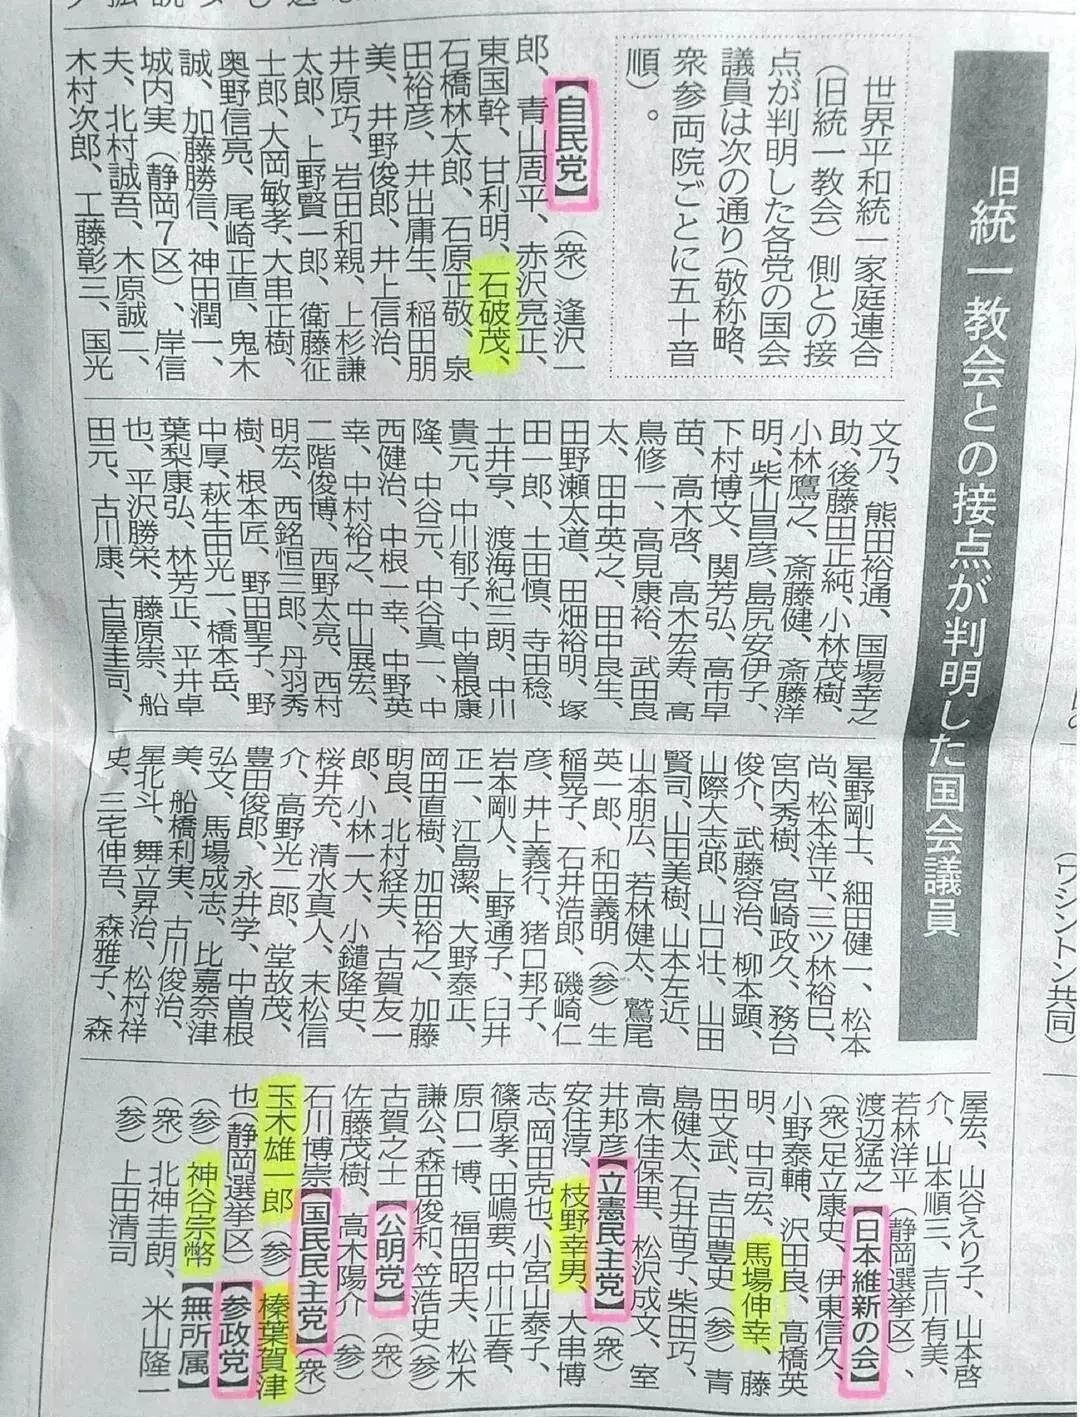 （ワシントン共同）
旧統一教会との接点が判明した国会議員
世界平和統一家庭連合
（旧統一教会）側との接
点が判明した各党の国会
議員は次の通り（敬称略、
衆参両院ごとに五十音
順）。
【自民党】（衆）逢沢一
郎、青山周平、赤沢亮正、
東国幹、甘利明、石破茂、
石橋林太郎、石原正敬、泉
田裕彦、井出庸生、稲田朋
美、井野俊郎、井上信治、
井原巧、岩田和親、上杉謙
太郎、上野賢一郎、衛藤征
士郎、大岡敏孝、大串正樹、
奥野信亮、尾崎正直、鬼木
誠、加藤勝信、神田潤一、
城内実（静岡７区）、岸信
夫、北村誠吾、木原誠二、
木村次郎、工藤彰三、国光
文乃、熊田裕通、国場幸之
助、後藤田正純、小林茂樹、
小林鷹之、斎藤健、斎藤洋
明、柴山昌彦、島尻安伊子、
下村博文、関芳弘、高市早
苗、高木啓、高木宏寿、高
鳥修一、高見康裕、武田良
太、田中英之、田中良生、
田野瀬太道、田畑裕明、塚
田一郎、土田慎、寺田稔、
土井亨、渡海紀三朗、中川
貴元、中川郁子、中曽根康
隆、中谷元、中谷真一、中
西健治、中根一幸、中野英
幸、中村裕之、中山展宏、
二階俊博、西野太亮、西村
明宏、西銘恒三郎、丹羽秀
樹、根本匠、野田聖子、野
中厚、萩生田光一、橋本岳、
葉梨康弘、林芳正、平井卓
也、平沢勝栄、藤原崇、船
田元、古川康、古屋圭司、
星野剛士、細田健一、松本
尚、松本洋平、三ツ林裕巳、
宮内秀樹、宮崎政久、務台
俊介、武藤容治、柳本顕、
山際大志郎、山口壮、山田
賢司、山田美樹、山本左近、
山本朋広、若林健太、鷲尾
英一郎、和田義明（参）生
稲晃子、石井浩郎、磯崎仁
彦、井上義行、猪口邦子、
岩本剛人、上野通子、臼井
正一、江島潔、大野泰正、
岡田直樹、加田裕之、加藤
明良、北村経夫、古賀友一
郎、小林一大、小鑓隆史、
桜井充、清水真人、末松信
介、高野光二郎、堂故茂、
豊田俊郎、永井学、中曽根
弘文、馬場成志、比嘉奈津
美、船橋利実、古川俊治、
星北斗、舞立昇治、松村祥
史、三宅伸吾、森雅子、森
屋宏、山谷えり子、山本啓
介、山本順三、吉川有美、
若林洋平（静岡選挙区）、
渡辺猛之【日本維新の会】
（衆）足立康史、伊東信久、
小野泰輔、沢田良、高橋英
明、中司宏、馬場伸幸、藤
田文武、吉田豊史（参）青
島健太、石井苗子、柴田巧、
高木佳保里、松沢成文、室
井邦彦【立憲民主党】（衆）
安住淳、枝野幸男、大串博
志、岡田克也、小宮山泰子、
篠原孝、田嶋要、中川正春、
原口一博、福田昭夫、松木
謙公、森田俊和、笠浩史（参）
古賀之士【公明党】（衆）
佐藤茂樹、高木陽介（参）
石川博崇【国民民主党】（衆）
玉木雄一郎（参）榛葉賀津
也（静岡選挙区）【参政党】
（参）神谷宗幣【無所属】
（衆）北神圭朗、米山隆一
（参）上田清司